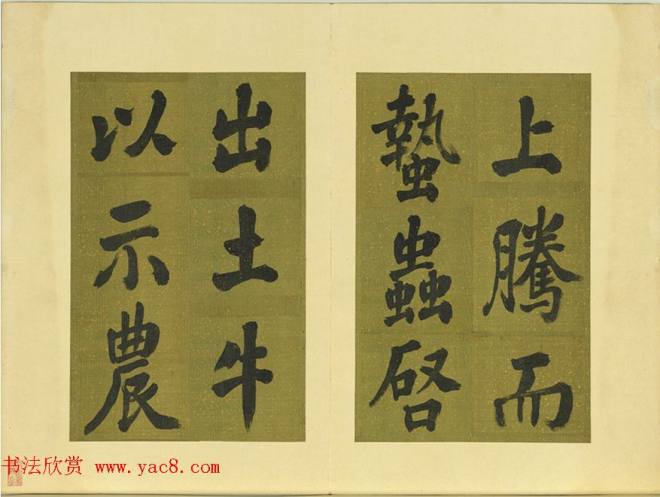 上騰而
蟄蟲啓
出土牛
以示農
书法欣赏 www.yac8.com